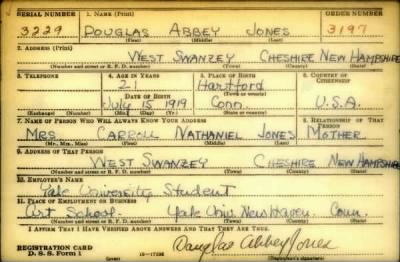 SERIAL NUMBER 1. NAME (Print) ORDER NUMBER
3229 DOUGLAS ABBEY JONES 3197
(First) (Middle) (Last)
2. ADDRESS (Print)
WEST SWANZEY CHESHIRE NEW HAMPSHIRE
(Number and street or R. F. D. number) (Town) (County) (State)
3. TELEPHONE 4. AGE IN YEARS 5. PLACE OF BIRTH 6. COUNTRY OF CITIZENSHIP
21 Hartford
DATE OF BIRTH (Town or county)
July 15 1919 Conn. U.S.A.
(Exchange) (Number) (Mo.) (Day) (Yr.) (State or country)
7. NAME OF PERSON WHO WILL ALWAYS KNOW YOUR ADDRESS 8. RELATIONSHIP OF THAT PERSON
MRS CARROLL NATHANIEL JONES MOTHER
(Mr., Mrs., Miss) (First) (Middle) (Last)
9. ADDRESS OF THAT PERSON
WEST SWANZEY CHESHIRE NEW HAMPSHIRE
(Number and street or R. F. D. number) (Town) (County) (State)
10. EMPLOYER'S NAME
Yale University Student
11. PLACE OF EMPLOYMENT OR BUSINESS
Art School Yale Univ. New Haven Conn.
(Number and street or R. F. D. number) (Town) (County) (State)
I AFFIRM THAT I HAVE VERIFIED ABOVE ANSWERS AND THAT THEY ARE TRUE.
REGISTRATION CARD
D. S. S. Form 1 16—17105 Douglas Abbey Jones
(over)